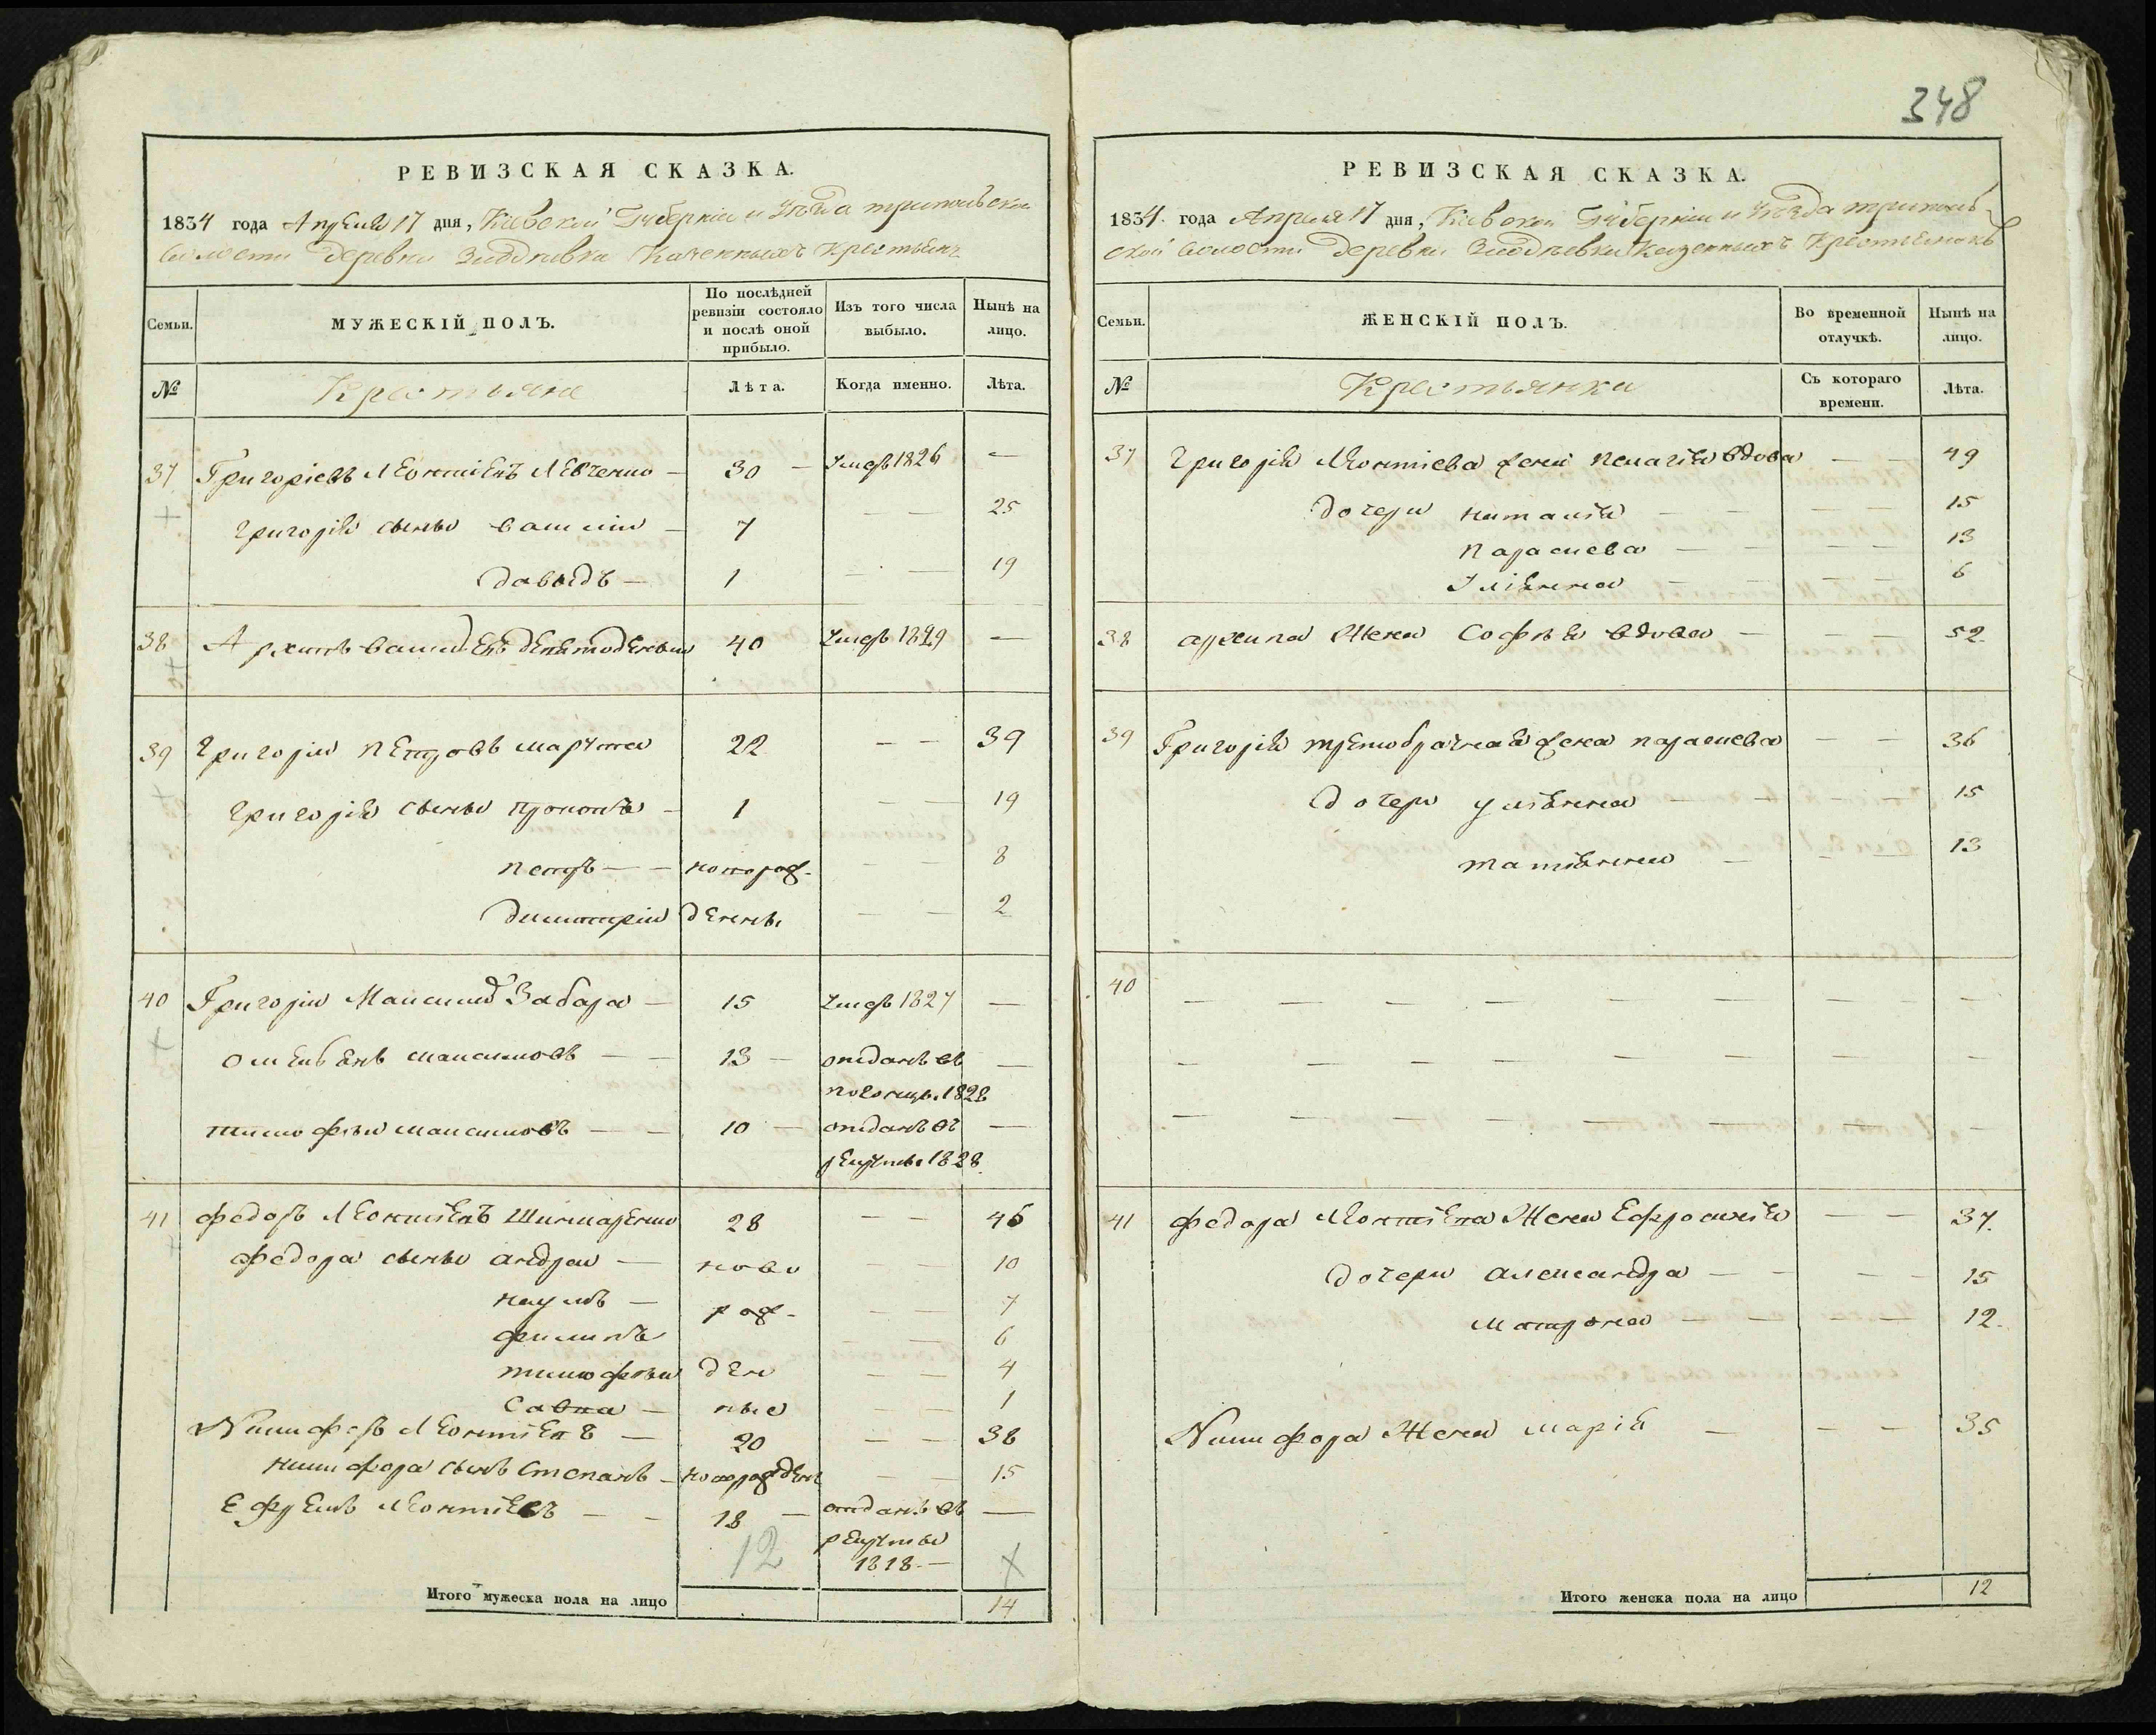 348
РЕВИЗСКАЯ СКАЗКА.
1834 года Апреля 17 дня, Киевской Губернии и уезда трипольской
волости деревни Злодиевки Казенныхъ Крестьянъ
Семьи.
МУЖЕСКІЙ ПОЛЪ.
По послѣдней ревизіи состояло и послѣ оной прибыло.
Изъ того числа выбыло.
Нынѣ на лицо.
№
Крестьяне
Лѣта.
Когда именно.
Лѣта.
37 Григоріевъ Леонтіевъ Левченко — 30 — Умеръ 1826 —
Григорія сыны василій — 7 — — 25
давидъ — 1 — — 19
38 Архипъ 40 Умеръ 1829 —
39 Григорій Петровъ марчена 22 — — 39
Григорія сыны прокопъ — 1 — — 19
петръ — — новорож- — — 8
димитрій денны — — 2
40 Григорій Максимовъ Забара — 15 Умеръ 1827 —
омельянъ максимовъ — — 13 — отданъ въ —
1828
тимофей максимовъ — — 10 — отданъ въ —
рекруты 1828.
41 федоръ Леонтіевъ Шинкаренко 28 — — 46
федора сыны андрей — ново — — 10
наумъ — рож- — — 7
филипъ — — 6
тимофей ден — — 4
Савка — ные — — 1
Никифоръ Леонтіевъ — 20 — — 38
никифора сынъ Степанъ — новорожденъ — — 15
Ефремъ леонтіевъ — — 18 — отданъ въ —
рекруты
1818.—
12
Итого мужеска пола на лицо 14
РЕВИЗСКАЯ СКАЗКА.
1834. года Апреля 17 дня, Киевской Губернии и уезда триполь-
ской волости деревни Злодіевки Казенныхъ Крестьянокъ
Семьи.
ЖЕНСКІЙ ПОЛЪ.
Во временной отлучкѣ.
Нынѣ на лицо.
№
Крестьянки
Съ котораго времени.
Лѣта.
37 Григорія Леонтіева жена пелагія вдова — — 49
дочери наталія — — — — 15
параскева — — — — 13
уліянна — — — — 6
38 архипа Жена Софія вдова — — — 52
39 Григорія третобрачная жена параскева — — 36
дочери уліянна — — — — 15
татіянна — — — 13
40 — — — — — — — — —
— — — — — — — — —
— — — — — — — — —
41 федора Леонтіева Жена Ефросинія — — 37.
дочери александра — — — — 15
матрона — — — — 12.
Никифора Жена марія — — — 35
Итого женска пола на лицо 12